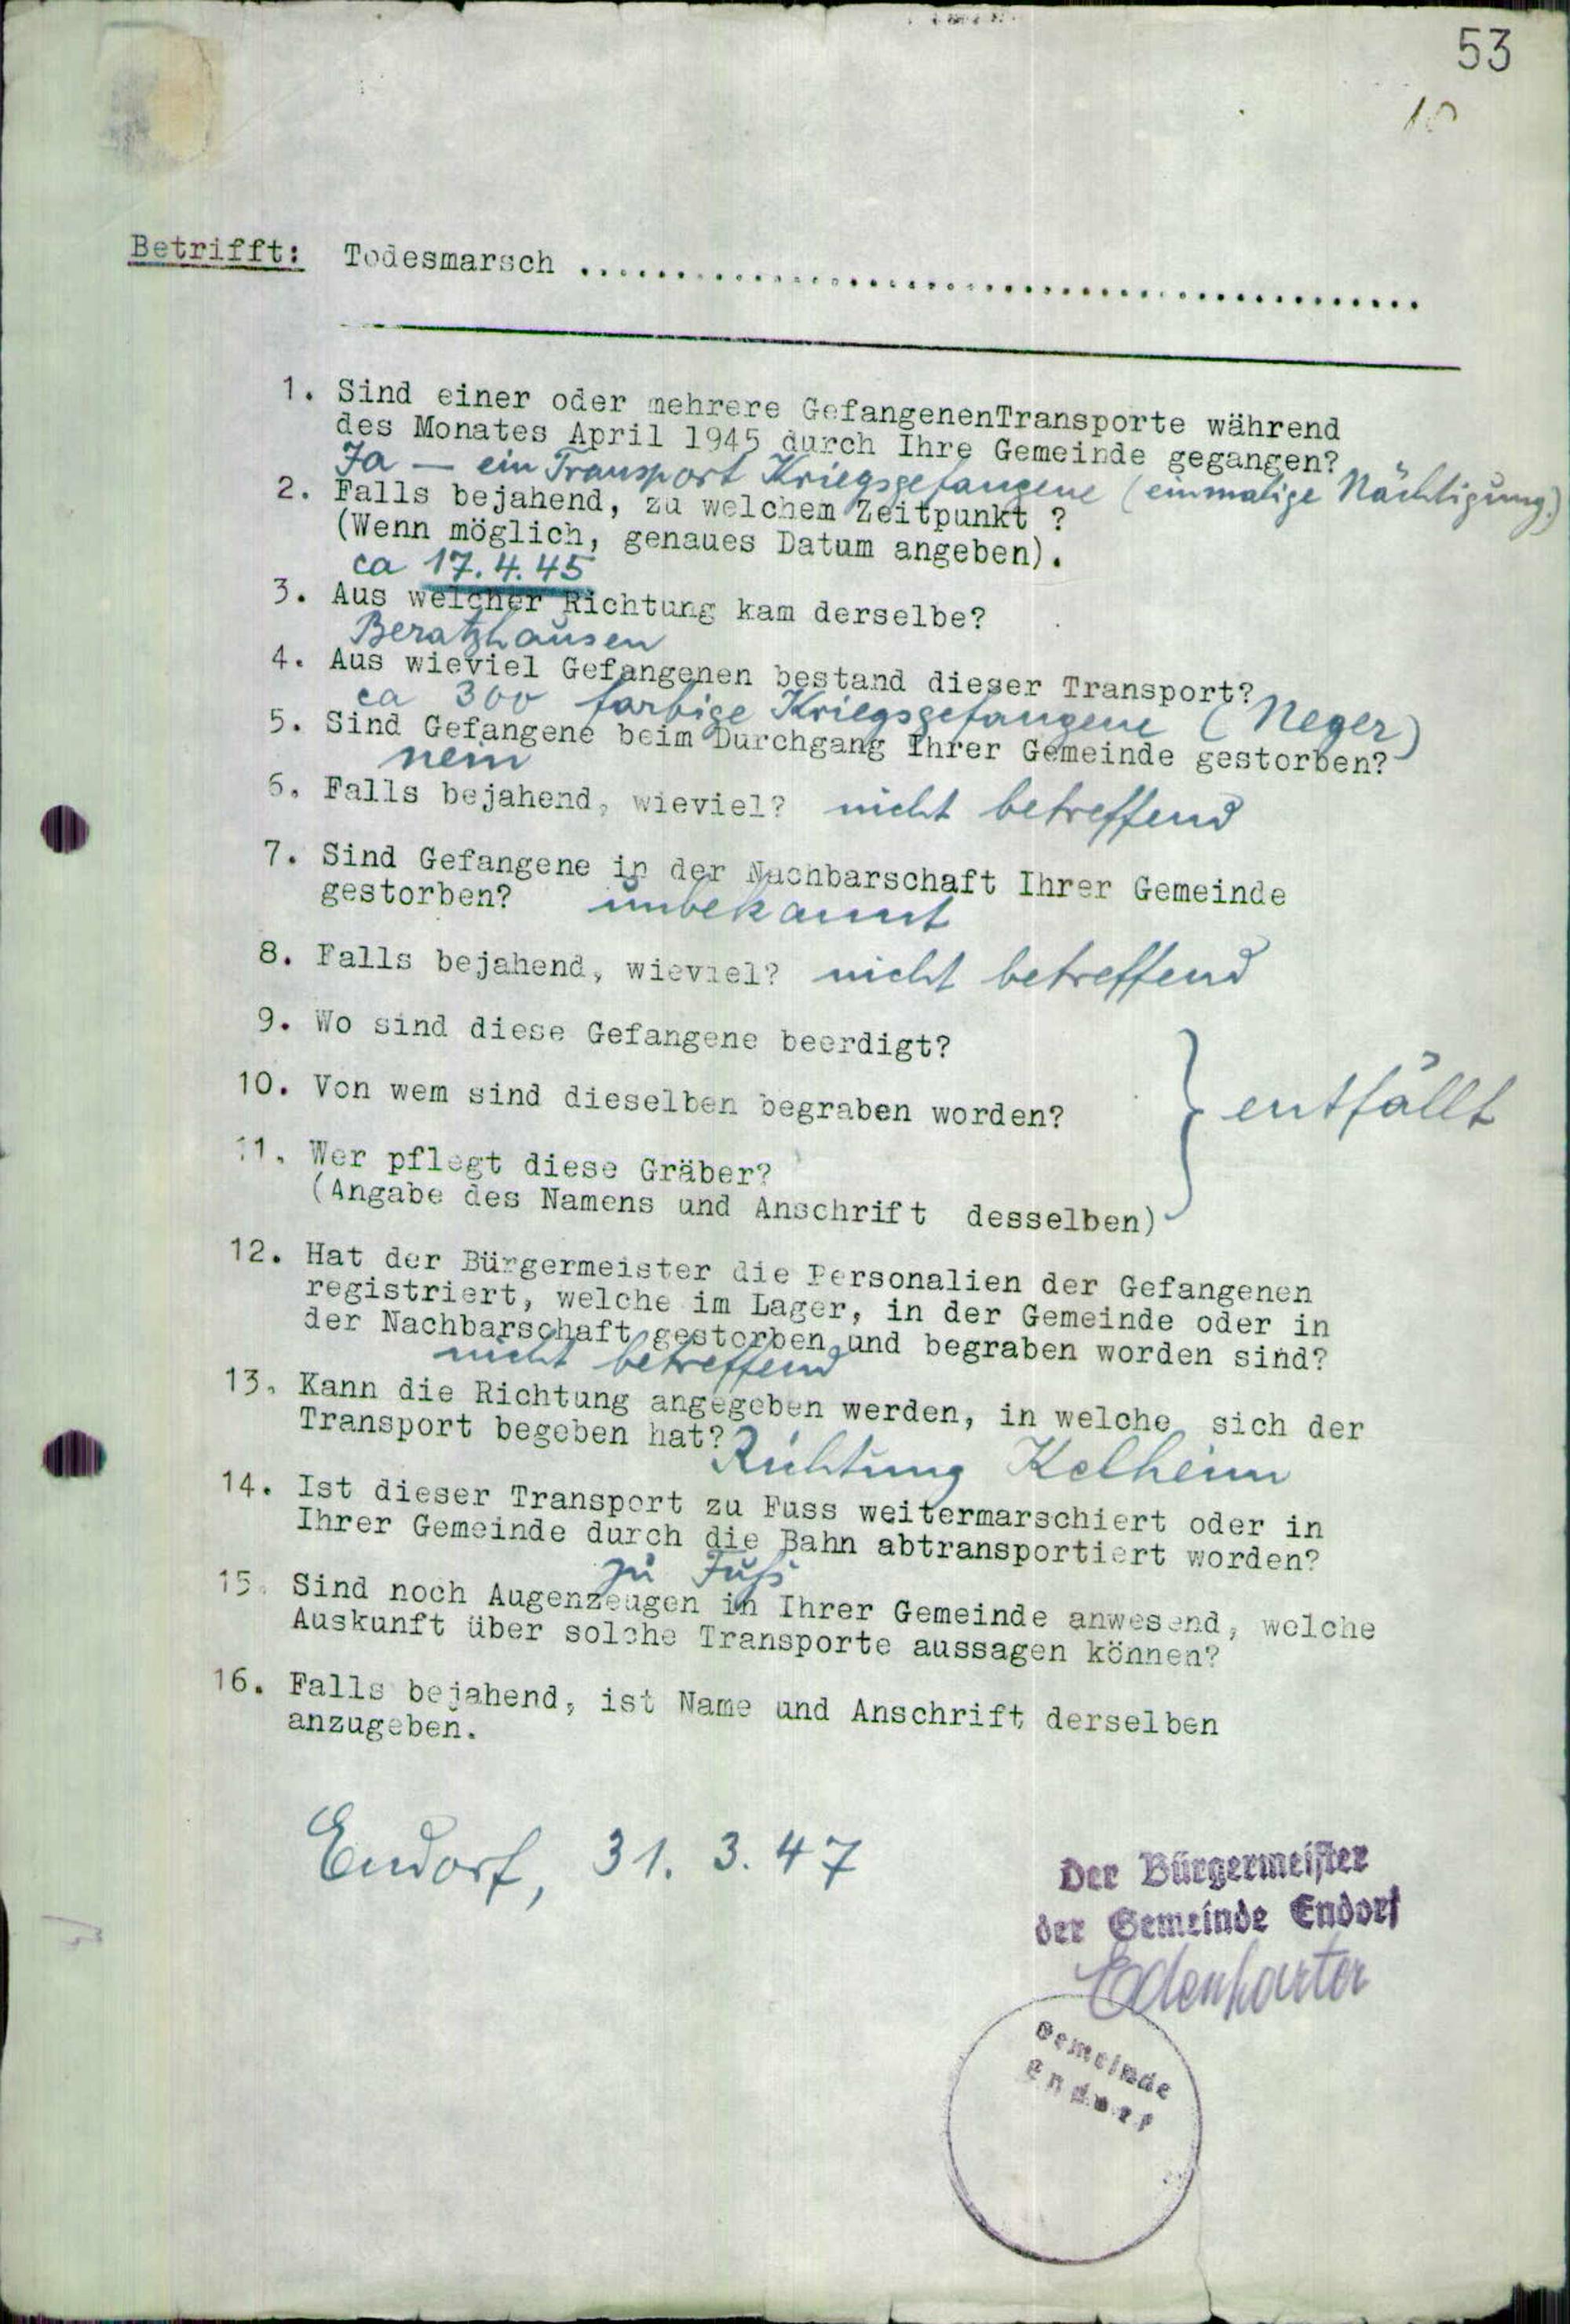 53
10
Betrifft: Todesmarsch ............................................
1. Sind einer oder mehrere GefangenenTransporte während
des Monates April 1945 durch Ihre Gemeinde gegangen?
Ja — ein Transport Kriegsgefangene (einmalige Nächtigung.)
2. Falls bejahend, zu welchem Zeitpunkt ?
(Wenn möglich, genaues Datum angeben).
ca 17.4.45
3. Aus welcher Richtung kam derselbe?
Beratzhausen
4. Aus wieviel Gefangenen bestand dieser Transport?
ca 300 farbige Kriegsgefangene (Neger)
5. Sind Gefangene beim Durchgang Ihrer Gemeinde gestorben?
nein
6. Falls bejahend, wieviel? nicht betreffend
7. Sind Gefangene in der Nachbarschaft Ihrer Gemeinde
gestorben? unbekannt
8. Falls bejahend, wieviel? nicht betreffend
9. Wo sind diese Gefangene beerdigt?
10. Von wem sind dieselben begraben worden?
entfällt
11. Wer pflegt diese Gräber?
(Angabe des Namens und Anschrift desselben)
12. Hat der Bürgermeister die Personalien der Gefangenen
registriert, welche im Lager, in der Gemeinde oder in
der Nachbarschaft gestorben und begraben worden sind?
nicht betreffend
13. Kann die Richtung angegeben werden, in welche sich der
Transport begeben hat? Richtung Kelheim
14. Ist dieser Transport zu Fuss weitermarschiert oder in
Ihrer Gemeinde durch die Bahn abtransportiert worden?
zu Fuß
15. Sind noch Augenzeugen in Ihrer Gemeinde anwesend, welche
Auskunft über solche Transporte aussagen können?
16. Falls bejahend, ist Name und Anschrift derselben
anzugeben.
Endorf, 31. 3. 47
Der Bürgermeister
der Gemeinde Endorf
Edenharter
Gemeinde
Endorf